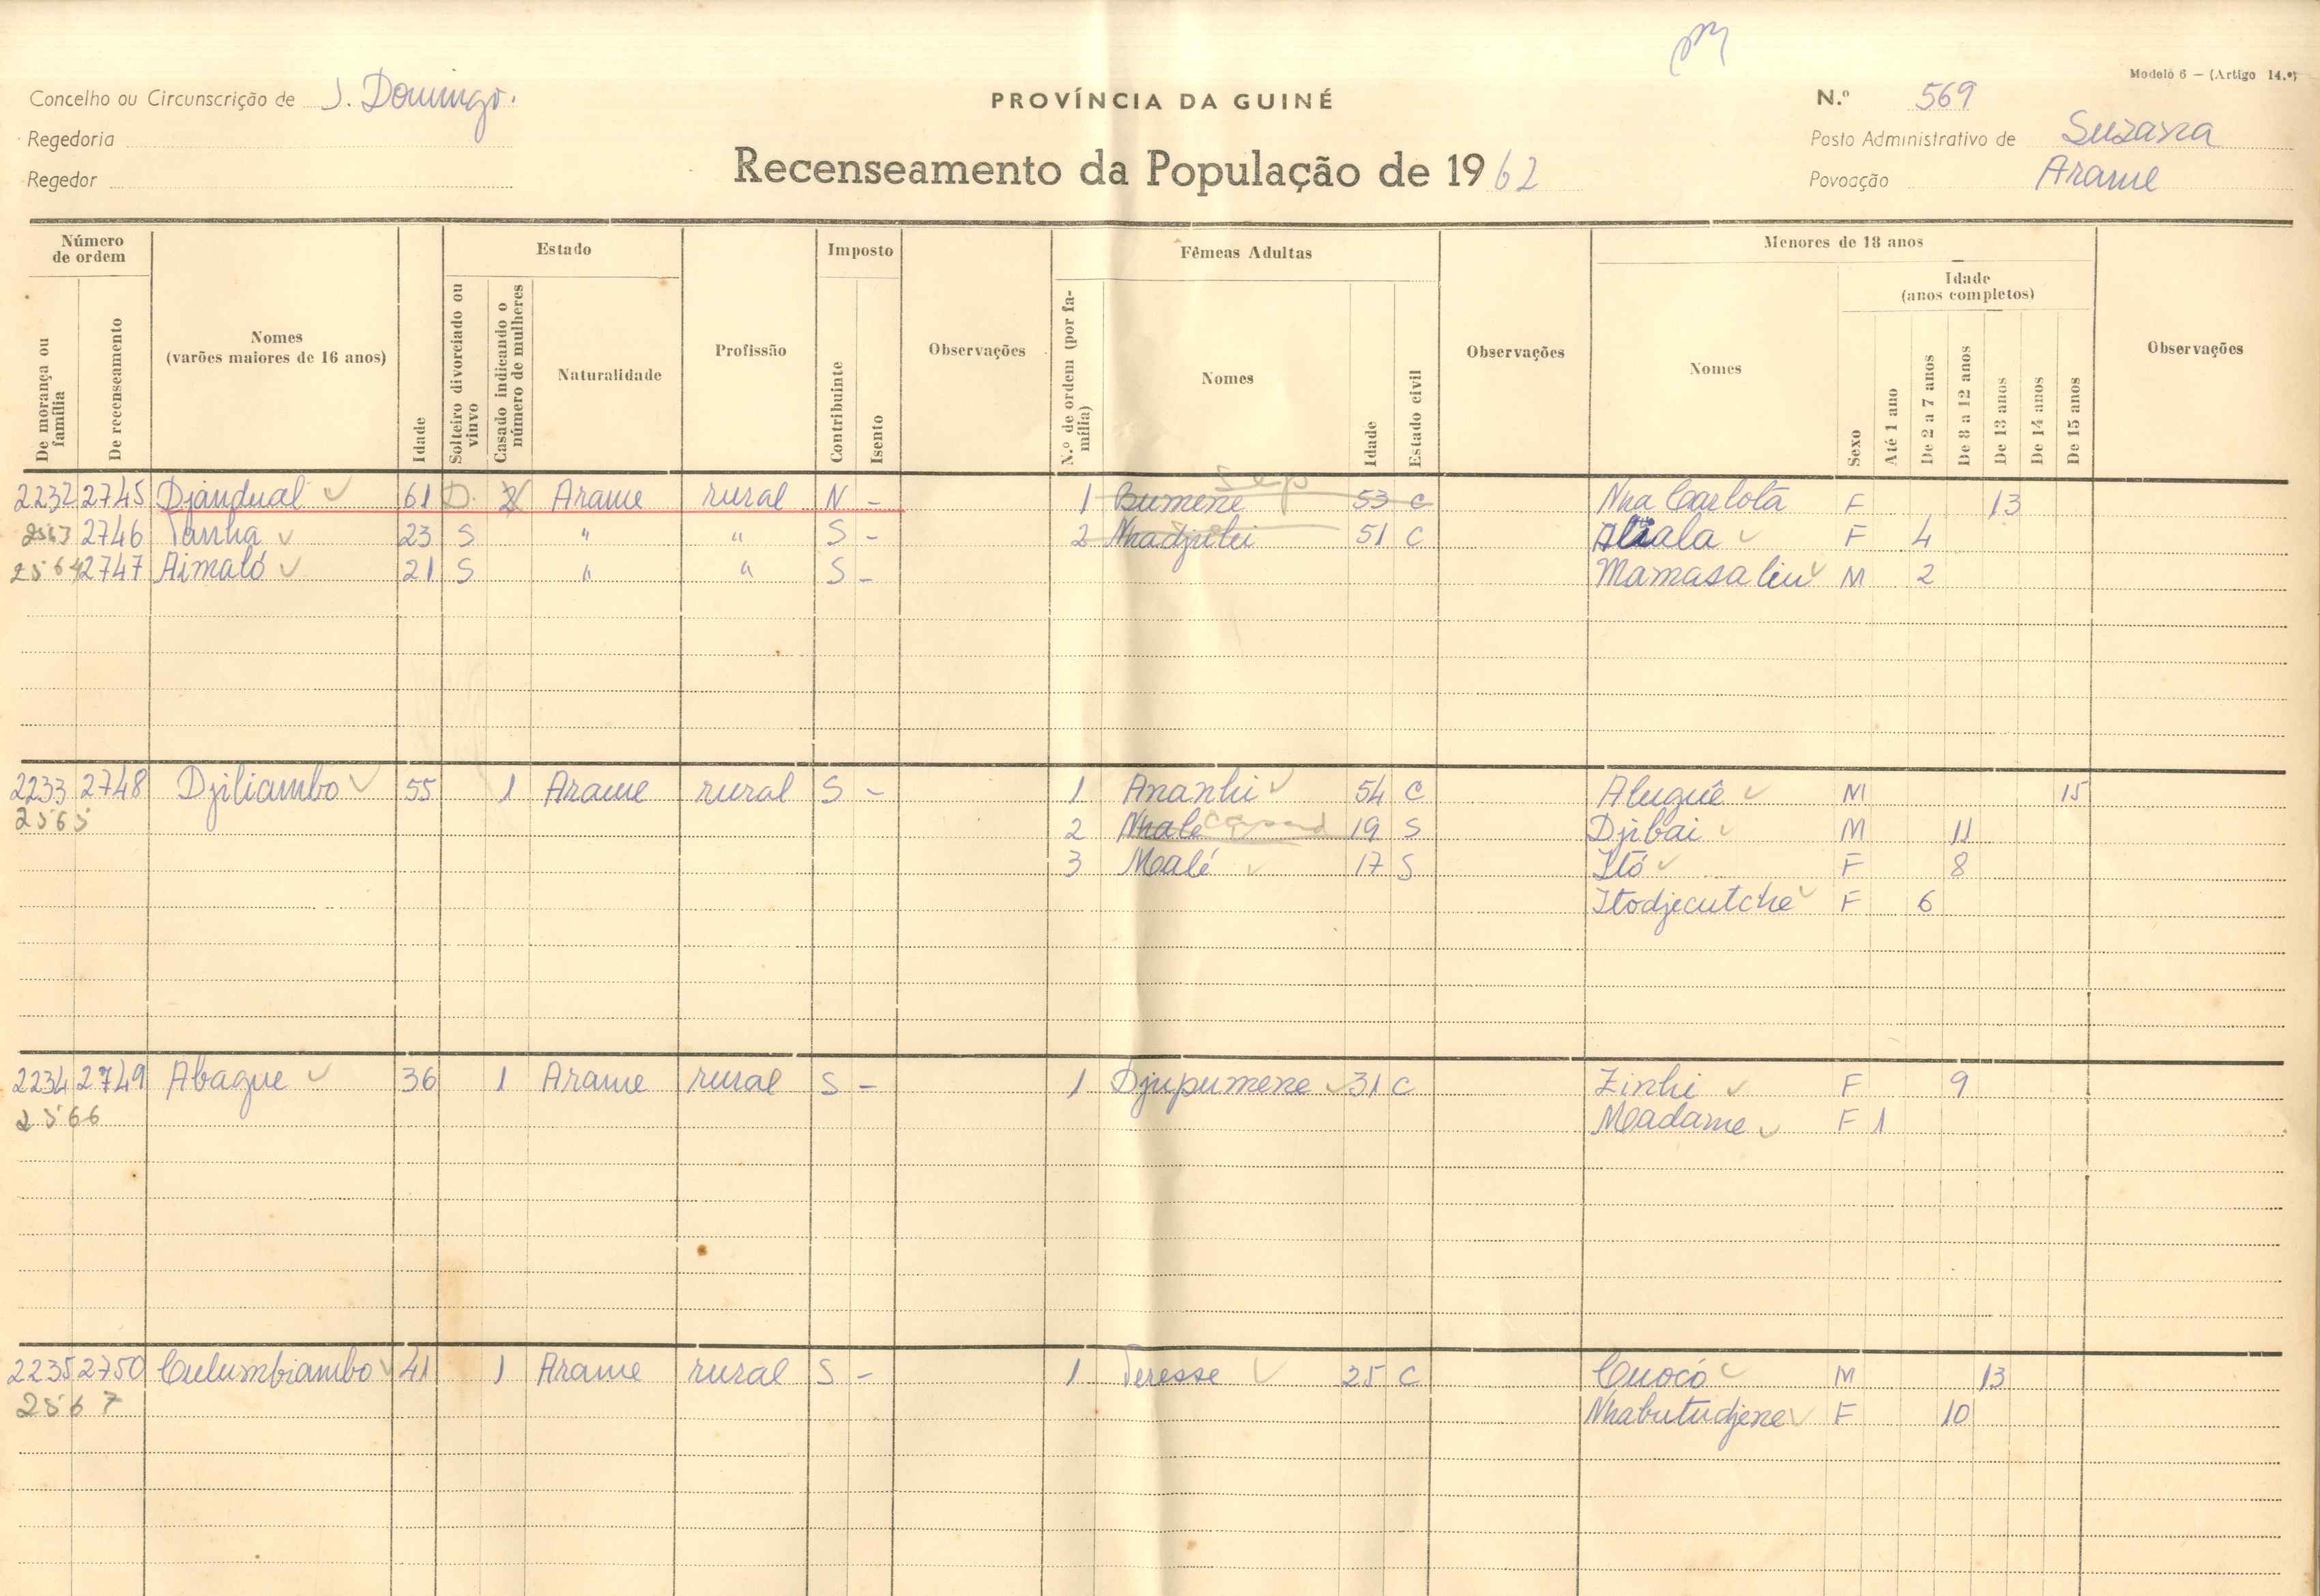 Modelo 6 — (Artigo 14.º)
Concelho ou Circunscrição de S. Domingos.
PROVÍNCIA DA GUINÉ
N.º 569
Regedoria
Posto Administrativo de Suzana
Regedor
Recenseamento da População de 1962
Povoação Arame
Número de ordem
De morança ou família
De recenseamento
Nomes
(varões maiores de 16 anos)
Idade
Estado
Solteiro divorciado ou viuvo
Casado indicando o número de mulheres
Naturalidade
Profissão
Imposto
Contribuinte
Isento
Observações
Fêmeas Adultas
N.º de ordem (por família)
Nomes
Idade
Estado civil
Observações
Menores de 18 anos
Nomes
Sexo
Idade
(anos completos)
Até 1 ano
De 2 a 7 anos
De 8 a 12 anos
De 13 anos
De 14 anos
De 15 anos
Observações
2232 2745 Djandual 61 D. 2 Arame rural N - 1 Bumene Sep 53 C Nha Carlota F 13
2563 2746 Tanha 23 S " " S - 2 Nhadjulei 51 C Aliala F 4
2564 2747 Aimaló 21 S " " S - Mamasaliu M 2
2233 2748 Djiliambo 55 1 Arame rural S - 1 Ananhi 54 C Aluguê M 15
2565 2 Nhalé casad 19 S Djibai M 11
3 Moalé 17 S Itó F 8
Itodjecutche F 6
2234 2749 Abague 36 1 Arame rural S - 1 Djupumene 31 C Zinhi F 9
2566 Moadame F 1
2235 2750 Culumbiambo 41 1 Arame rural S - 1 Teresse 25 C Cuocó M 13
2567 Nhabutudjene F 10